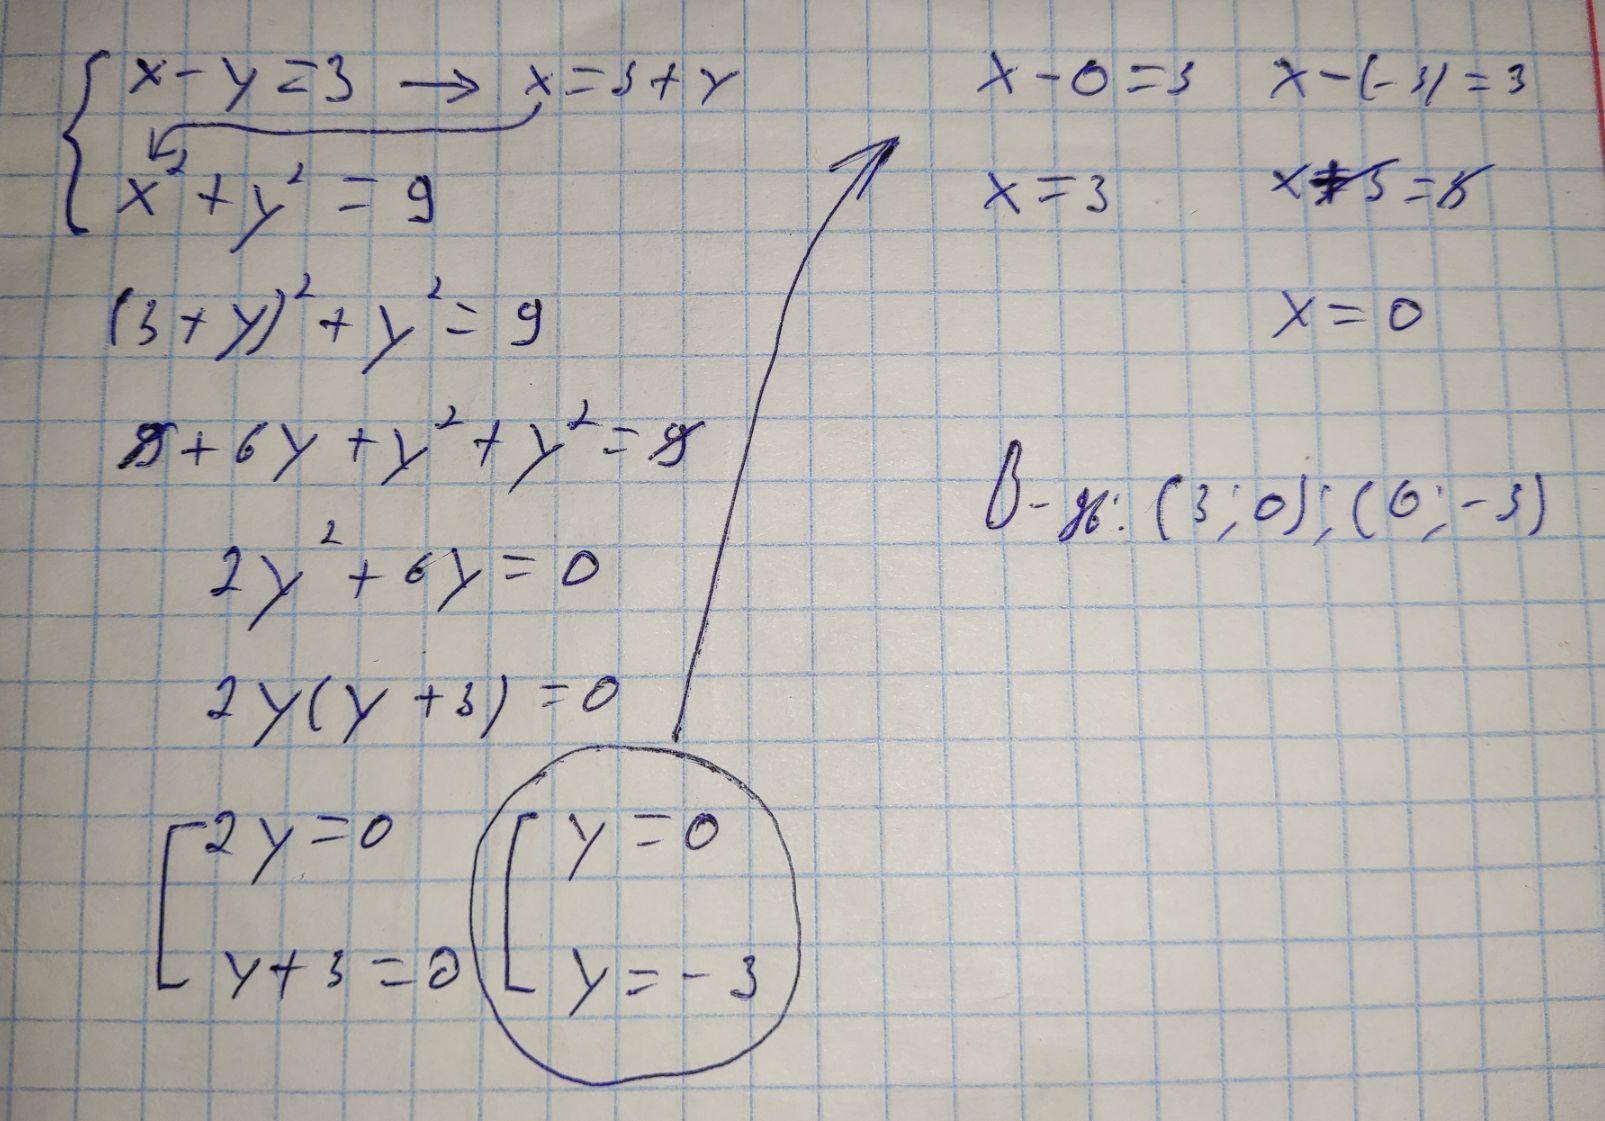 x - y = 3 → x = 3 + y
x² + y² = 9
(3 + y)² + y² = 9
9 + 6y + y² + y² = 9
2y² + 6y = 0
2y(y + 3) = 0
2y = 0
y + 3 = 0
y = 0
y = -3
x - 0 = 3
x = 3
x - (-3) = 3
x + 3 = 3
x = 0
В-дь: (3; 0); (0; -3)